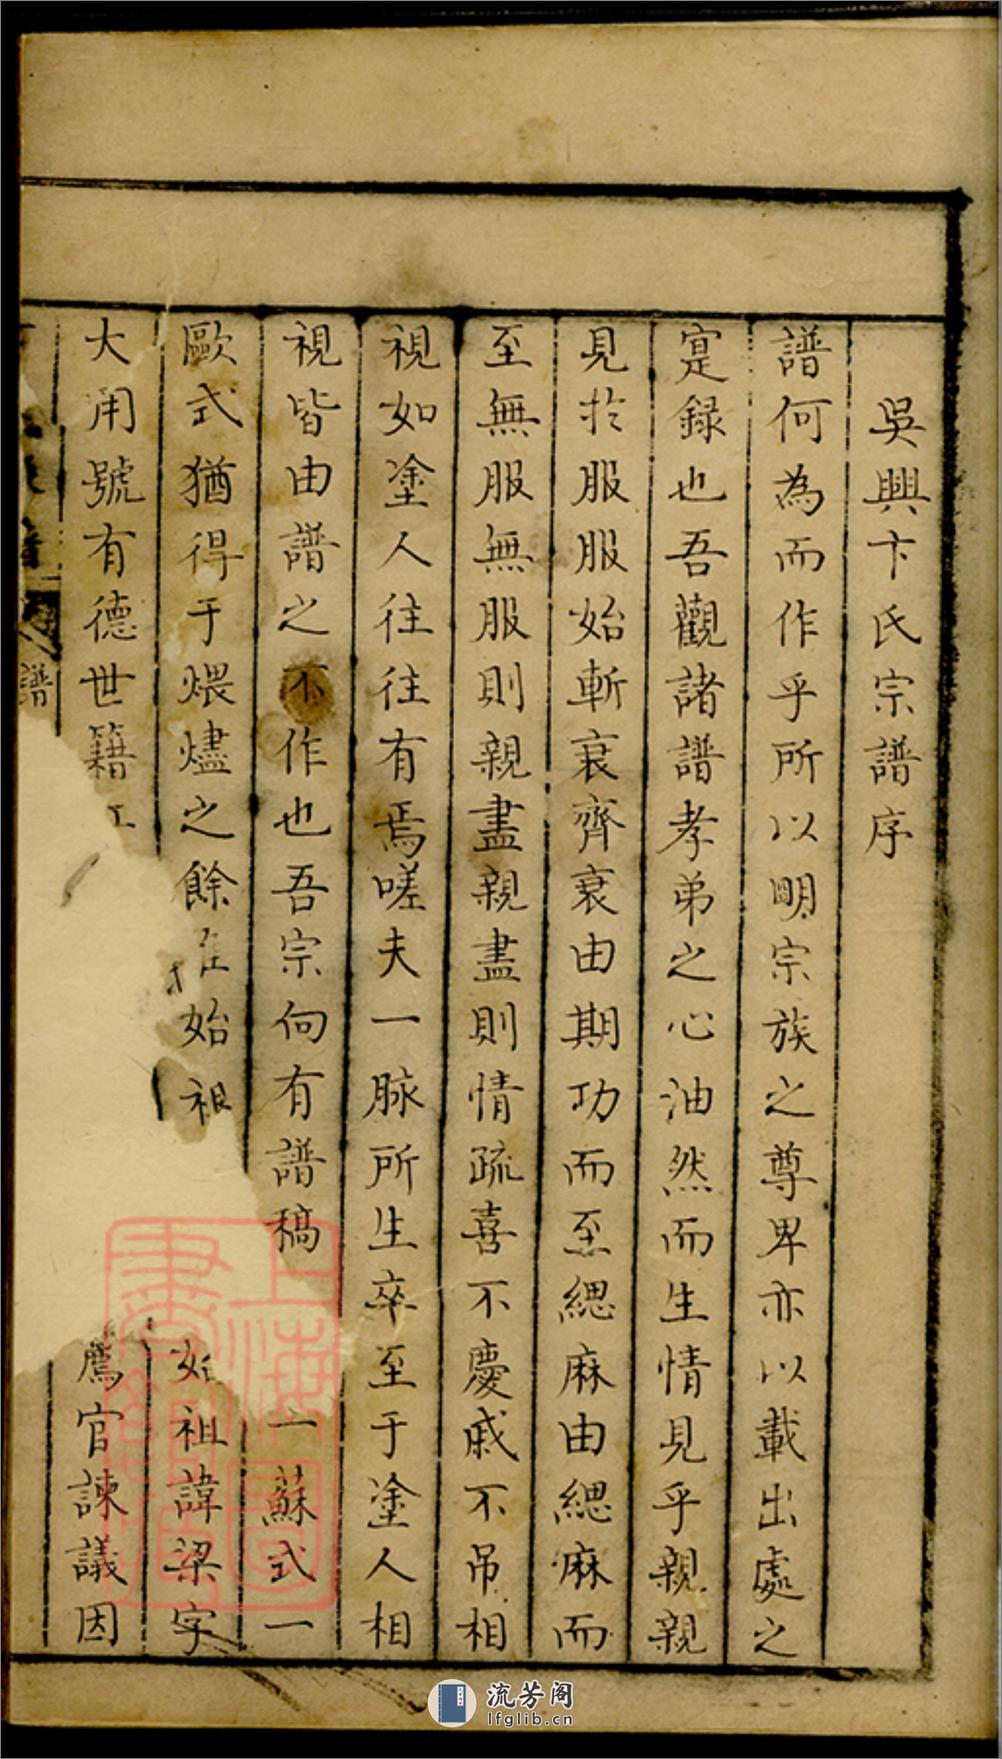 吳興卞氏宗譜序
譜何為而作乎所以明宗族之尊卑亦以載出處之
寔録也吾觀諸譜孝弟之心油然而生情見乎親親
見於服服始斬衰齊衰由期功而至緦麻由緦麻而
至無服無服則親盡親盡則情疏喜不慶戚不吊相
視如塗人往往有焉嗟夫一脉所生卒至于塗人相
視皆由譜之不作也吾宗向有譜稿一蘇式一
歐式猶得于煨燼之餘始祖始祖諱梁字
大用號有德世籍薦官諫議因
譜
上海圖書館藏
流芳阁
lfglib.cn